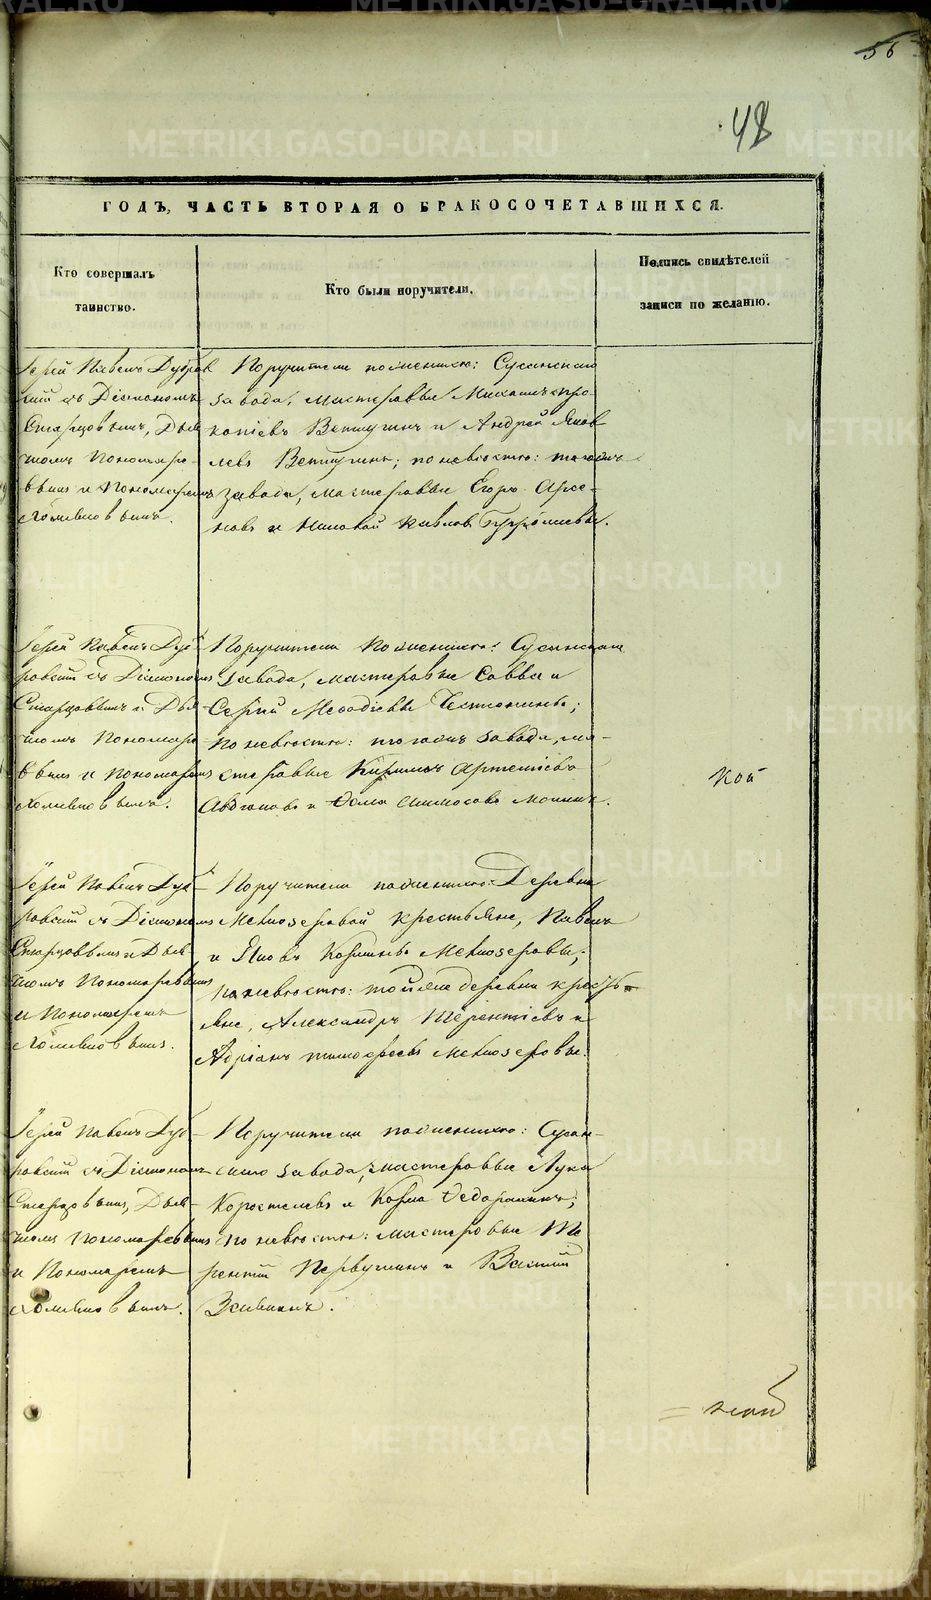 56
48
ГОДЪ, ЧАСТЬ ВТОРАЯ О БРАКОСОЧЕТАВШИХСЯ.
Кто совершалъ
таинство.
Кто были поручители.
Подпись свидѣтелей
записи по желанію.
Іерей Павелъ Дубров
скій съ Діакономъ
Старцовымъ, Дья
чкомъ Пономаре-
вымъ и Пономаремъ
Поручители по женихѣ: Сусанскаго
завода, мастеровые Михаилъ Про-
копіевъ Ветлугинъ и Андрей Яков
левъ Ветлугины; по невѣстѣ: тогожъ
завода, мастеровые Егоръ
Іерей Павелъ Дуб-
ровскій съ Діакономъ
Старцовымъ и Дья
чкомъ Пономаре-
вымъ и Пономаремъ
Поручители по женихѣ: Сусанскаго
завода, мастеровые Савва и
Сергій Меѳодіевы
по невѣстѣ: тогожъ завода, ма-
стеровые Кириллъ Артеміевъ
и Ѳома
Іерей Павелъ Дуб-
ровскій съ Діакономъ
Старцовымъ и Дья
чкомъ Пономаревымъ
и Пономаремъ
Поручители по женихѣ: Деревни
Мелкозеровой крестьяне, Павелъ
и Яковъ Мелкозеровы;
по невѣстѣ: той же деревни кресть-
яне, Александръ Терентіевъ и
Адріанъ Тимофеевъ Мелкозеровы.
Іерей Павелъ Дуб-
ровскій съ Діакономъ
Старцовымъ, Дья-
чкомъ Пономаревымъ
и Пономаремъ
Поручители по женихѣ: Сусан-
скаго завода, мастеровые Лука
Коростелевъ и Козма Ѳедоровъ;
по невѣстѣ: мастеровые Те
рентій Первушинъ и Василій
METRIKI.GASO-URAL.RU